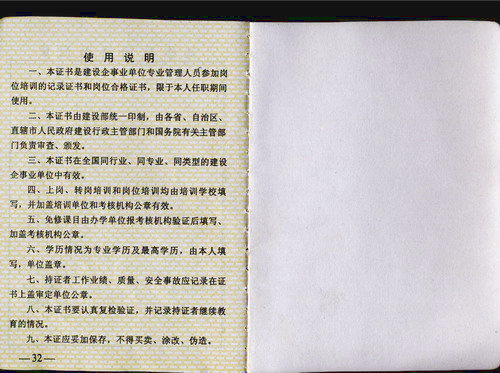 使用说明
一、本证书是建设企事业单位专业管理人员参加岗
位培训的记录证书和岗位合格证书，限于本人任职期间
使用。
二、本证书由建设部统一印制，由各省、自治区、
直辖市人民政府建设行政主管部门和国务院有关主管部
门负责审查、颁发。
三、本证书在全国同行业、同专业、同类型的建设
企事业单位中有效。
四、上岗、转岗培训和岗位培训均由培训学校填
写，并加盖培训单位和考核机构公章有效。
五、免修课目由办学单位报考核机构验证后填写、
加盖考核机构公章。
六、学历情况为专业学历及最高学历，由本人填
写，单位盖章。
七、持证者工作业绩、质量、安全事故应记录在证
书上盖审定单位公章。
八、本证书要认真复检验证，并记录持证者继续教
育的情况。
九、本证应妥加保存，不得买卖、涂改、伪造。
—32—